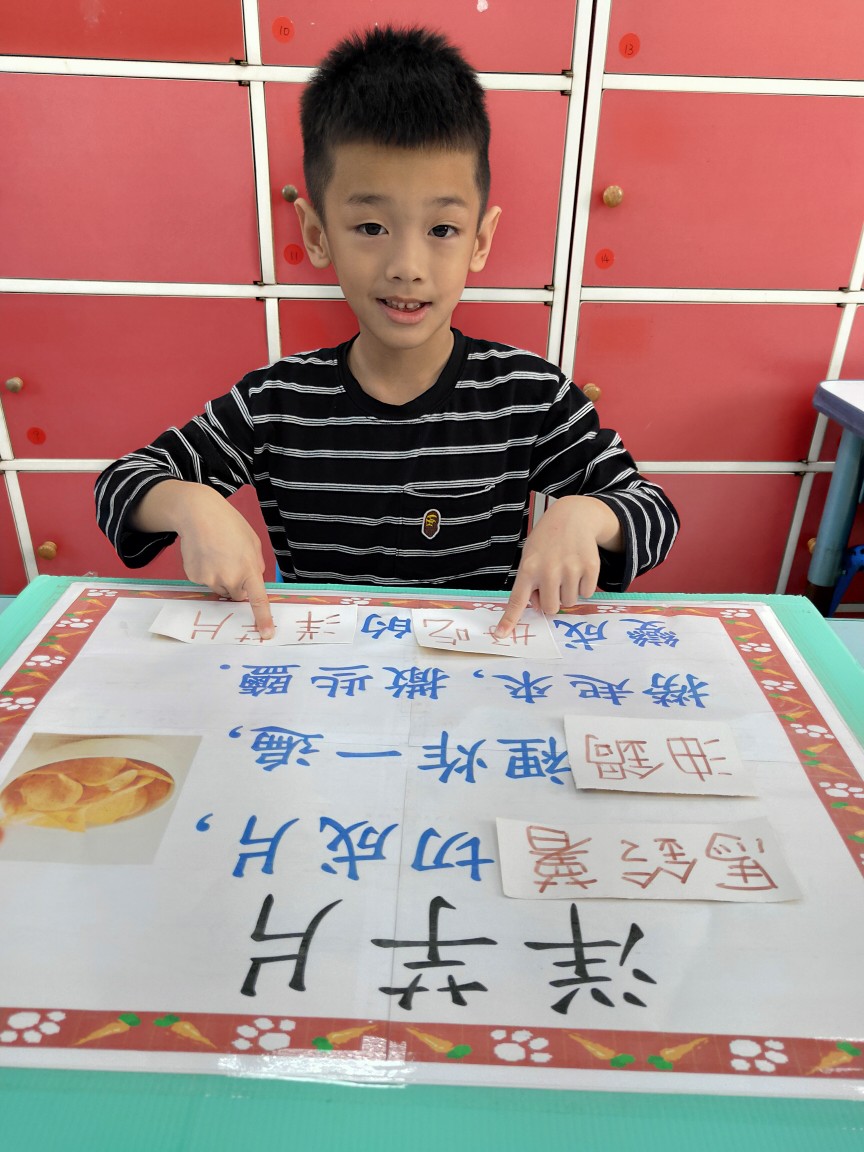 洋芋片
馬鈴薯切成片，
油鍋裡炸一遍，
撈起來，撒些鹽．
變成好吃的洋芋片
10
13
11
14